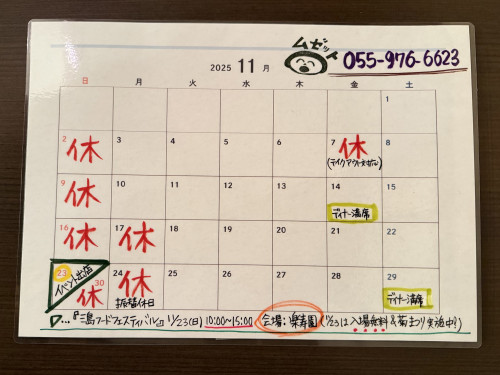 ムゼット 055-976-6623
2025 11 月
日 月 火 水 木 金 土
1
2 休 3 4 5 6 7 休 8
(テイクアウトのみ)
9 休 10 11 12 13 14 15
ディナー満席
16 休 17 休 18 19 20 21 22
23 イベント出店 30 休 24 休 25 26 27 28 29
振替休日 ディナー満席
▷…『三島フードフェスティバル』 11/23(日) 10:00~15:00 会場:楽寿園 (11/23は入場無料&菊まつり実施中!)